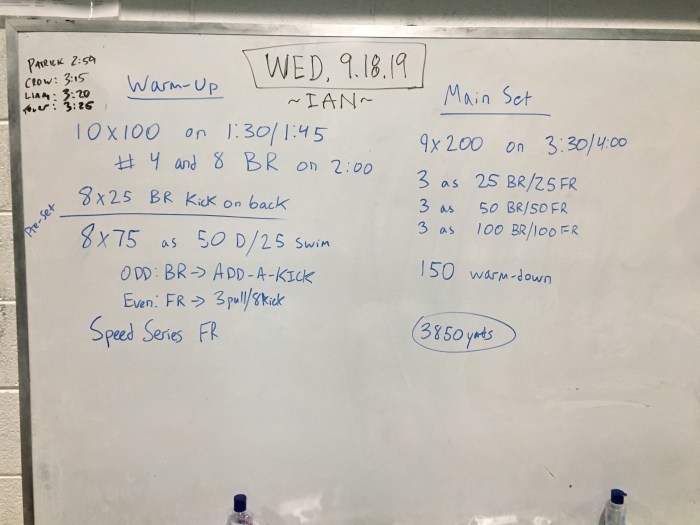 WED, 9.18.19
~IAN~
PATRICK 2:59
CROW: 3:15
LIAM: 3:20
3:25
Warm-Up
10x100 on 1:30/1:45
# 4 and 8 BR on 2:00
8x25 BR Kick on back
Pre-Set
8x75 as 50 D/25 Swim
ODD: BR→ ADD-A-KICK
Even: FR→ 3pull/8kick
Speed Series FR
Main Set
9x200 on 3:30/4:00
3 as 25 BR/25 FR
3 as 50 BR/50 FR
3 as 100 BR/100 FR
150 warm-down
3850 yards